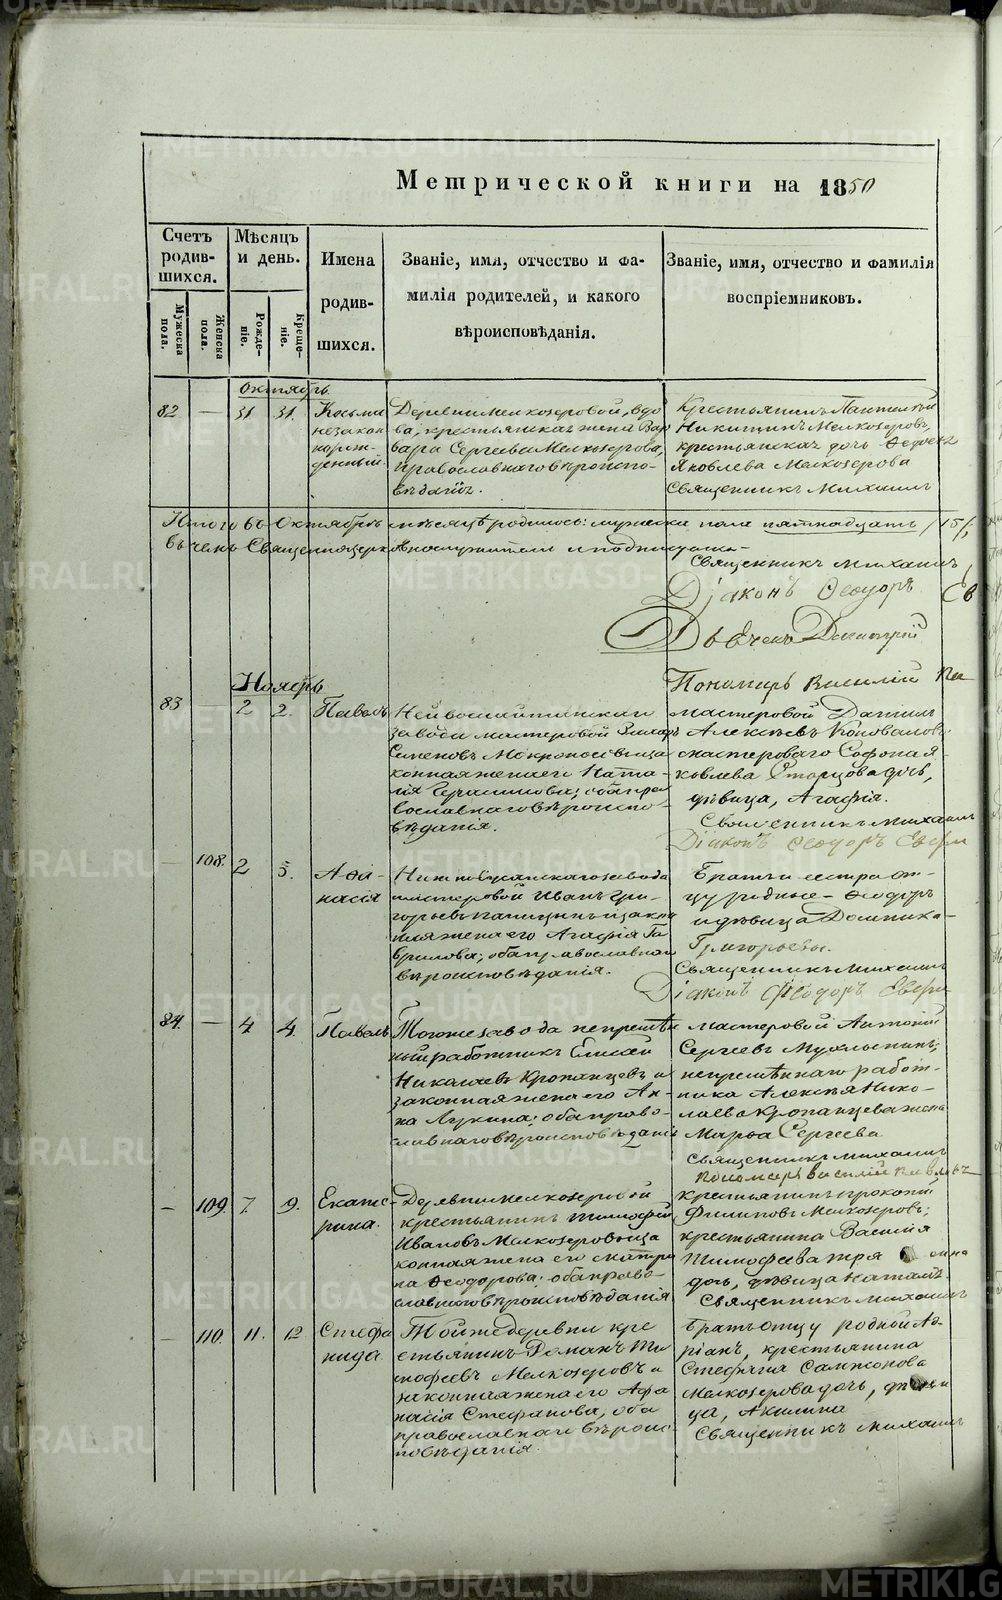 Метрической книги на 1850
Счетъ родив-шихся.
Мѣсяцъ и день.
Имена родив-шихся.
Званіе, имя, отчество и фа-
милія родителей, и какого
вѣроисповѣданія.
Званіе, имя, отчество и фамилія
воспріемниковъ.
Мужеска пола.
Женска пола.
Рожде-ніе.
Креще-ніе.
Октябрь
82 — 31 31. Косьма
незакон
норож-
денный
Деревни Мелкозеровой, вдо
ва, крестьянская жена Вар
вара Сергеева Мелкозерова,
православнаго вѣроиспо-
вѣданія.
Крестьянинъ Пантелей
Никитинъ Мелкозеровъ,
крестьянская дочь
Яковлева Мелкозерова
Священникъ Михаилъ
Итого въ Октябрѣ мѣсяцѣ родилось: мужеска пола пятнадцать /15/,
въ чемъ Священноцерковнослужители и подписуемся
Священникъ Михаилъ
Діаконъ Ѳеодоръ Ев
Дьячекъ Димитрій
Пономарь Василій Па
Ноябрь
83 — 2 2. Павелъ
завода мастеровой
Семеновъ Мокроносовъ и за
конная жена его Ната-
лія Герасимова; оба пра
вославнаго вѣроиспо-
вѣданія.
мастеровой Даниилъ
Алексѣевъ Коноваловъ
мастероваго Софона Я-
ковлева Старцова дочь,
дѣвица, Агафія.
Священникъ Михаилъ
Діаконъ Ѳеодоръ Евери
— 108. 2 5. Аѳа-
насія
завода
мастеровой Иванъ Гри-
горьевъ и зако
нная жена его Агафія Га
врилова; оба православнаго
вѣроисповѣданія.
Братъ и сестра от-
цу родные — Ѳеодоръ
и дѣвица Домника-
Григорьевы.
Священникъ Михаилъ
Діаконъ Ѳеодоръ Евери
84. — 4 4. Павелъ
Тогоже завода непремѣн
ный работникъ Елисей
Николаевъ Кропанцевъ и
законная жена его Ан-
на Лукина; оба право-
славнаго вѣроисповѣданія
мастеровой Антоній
Сергеевъ
непремѣннаго работ-
ника Алексѣя Нико-
лаева Кропанцева жена
Марѳа Сергеева
Священникъ Михаилъ
пономарь Василій Павловъ
— 109. 7 9. Екате-
рина.
Деревни Мелкозеровой
крестьянинъ Тимофей
Ивановъ Мелкозеровъ и за
конная жена его Матре
на Ѳеодорова; оба право-
славнаго вѣроисповѣданія
крестьянинъ Прокопій
Филиповъ Мелкозеровъ;
крестьянина Василія
Тимофеева
дочь, дѣвица Наталія.
Священникъ Михаилъ
— 110. 11. 12 Стефа
нида
Тойже деревни кре
стьянинъ Романъ Ти
мофеевъ Мелкозеровъ и
законная жена его Афа
насія Стефанова, оба
православнаго вѣроис-
повѣданія.
Братъ отцу родной Ад-
ріанъ, крестьянина
Стефана Сампсонова
Мелкозерова дочь, дѣви
ца, Акилина
Священникъ Михаилъ